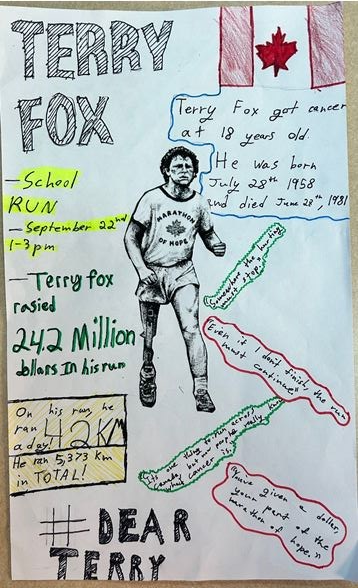 TERRY
FOX
Terry Fox got cancer
at 18 years old.
He was born
July 28th 1958
and died June 28th, 1981
- School
RUN
- September 22nd
1-3pm
MARATHON
OF HOPE
- Terry fox
rasied
24.2 Million
dollars In his run
On his run, he
ran 42KM
a day!
He ran 5,373 km
in TOTAL!
"Somewhere the hurting
must stop."
"Even if I don't finish, the run
must continue"
to run across
but now people really know
cancer is.
given a dollar,
your part of the
Marathon of hope."
# DEAR
TERRY